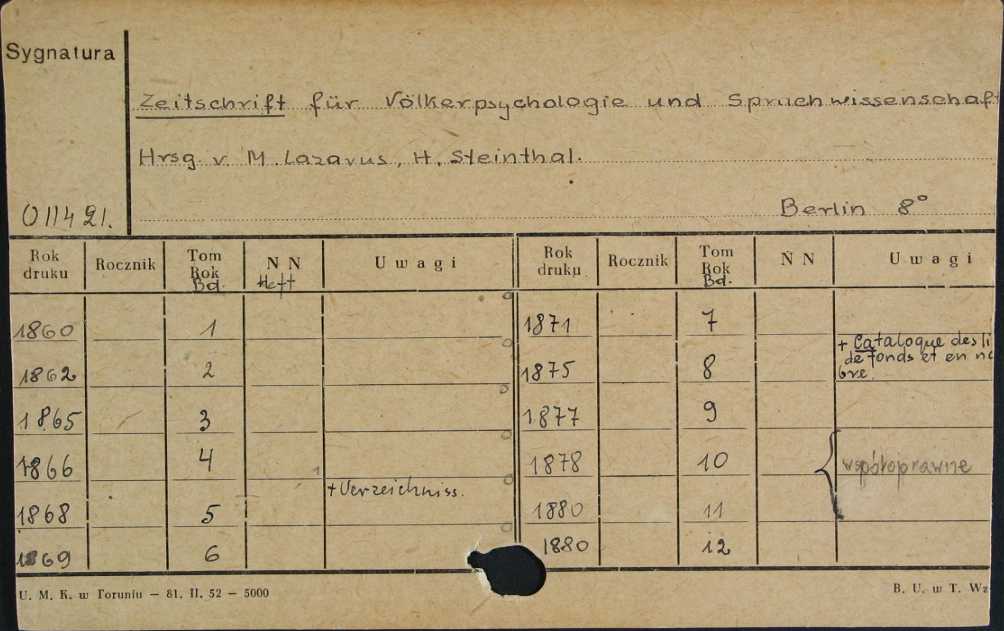 Sygnatura
Zeitschrift für Völkerpsychologie und Spruchwissenschaft
Hrsg v. M. Lazarus, H. Steinthal.
011421. Berlin 8°
Rok druku Rocznik Tom Rok Bd. N N Heft Uwagi Rok druku Rocznik Tom Rok Bd. N N Uwagi
1860 1 1871 7
1862 2 1875 8 + Catalogue des li
de fonds et en no
bre.
1865 3 1877 9
1866 4 1878 10 współoprawne
+ Verzeichniss.
1868 5 1880 11
1869 6 1880 12
U. M. K. w Toruniu — 81. II. 52 — 5000 B. U. w T. Wz